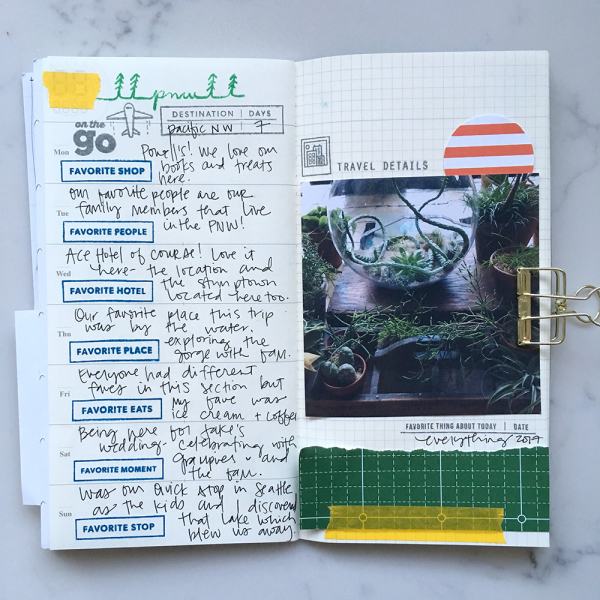 pnw
on the go
DESTINATION | DAYS
pacific NW | 7
Mon
Powell's! We love our
books and treats
here.
FAVORITE SHOP
Our favorite people are our
family members that live
in the PNW!
Tue
FAVORITE PEOPLE
Ace Hotel of course! Love it
here- the location and
the stumptown
located here too.
Wed
FAVORITE HOTEL
Our favorite place this trip
was by the water.
exploring the
gorge with fam.
Thu
FAVORITE PLACE
Everyone had different
faves in this section but
my fave was
ice cream + coffee
Fri
FAVORITE EATS
Being here for Jake's
wedding- celebrating with
and
the fam.
Sat
FAVORITE MOMENT
Was our quick stop in Seattle
as the kids and I discovered
that lake which
blew us away.
Sun
FAVORITE STOP
TRAVEL DETAILS
FAVORITE THING ABOUT TODAY | DATE
everything 2017